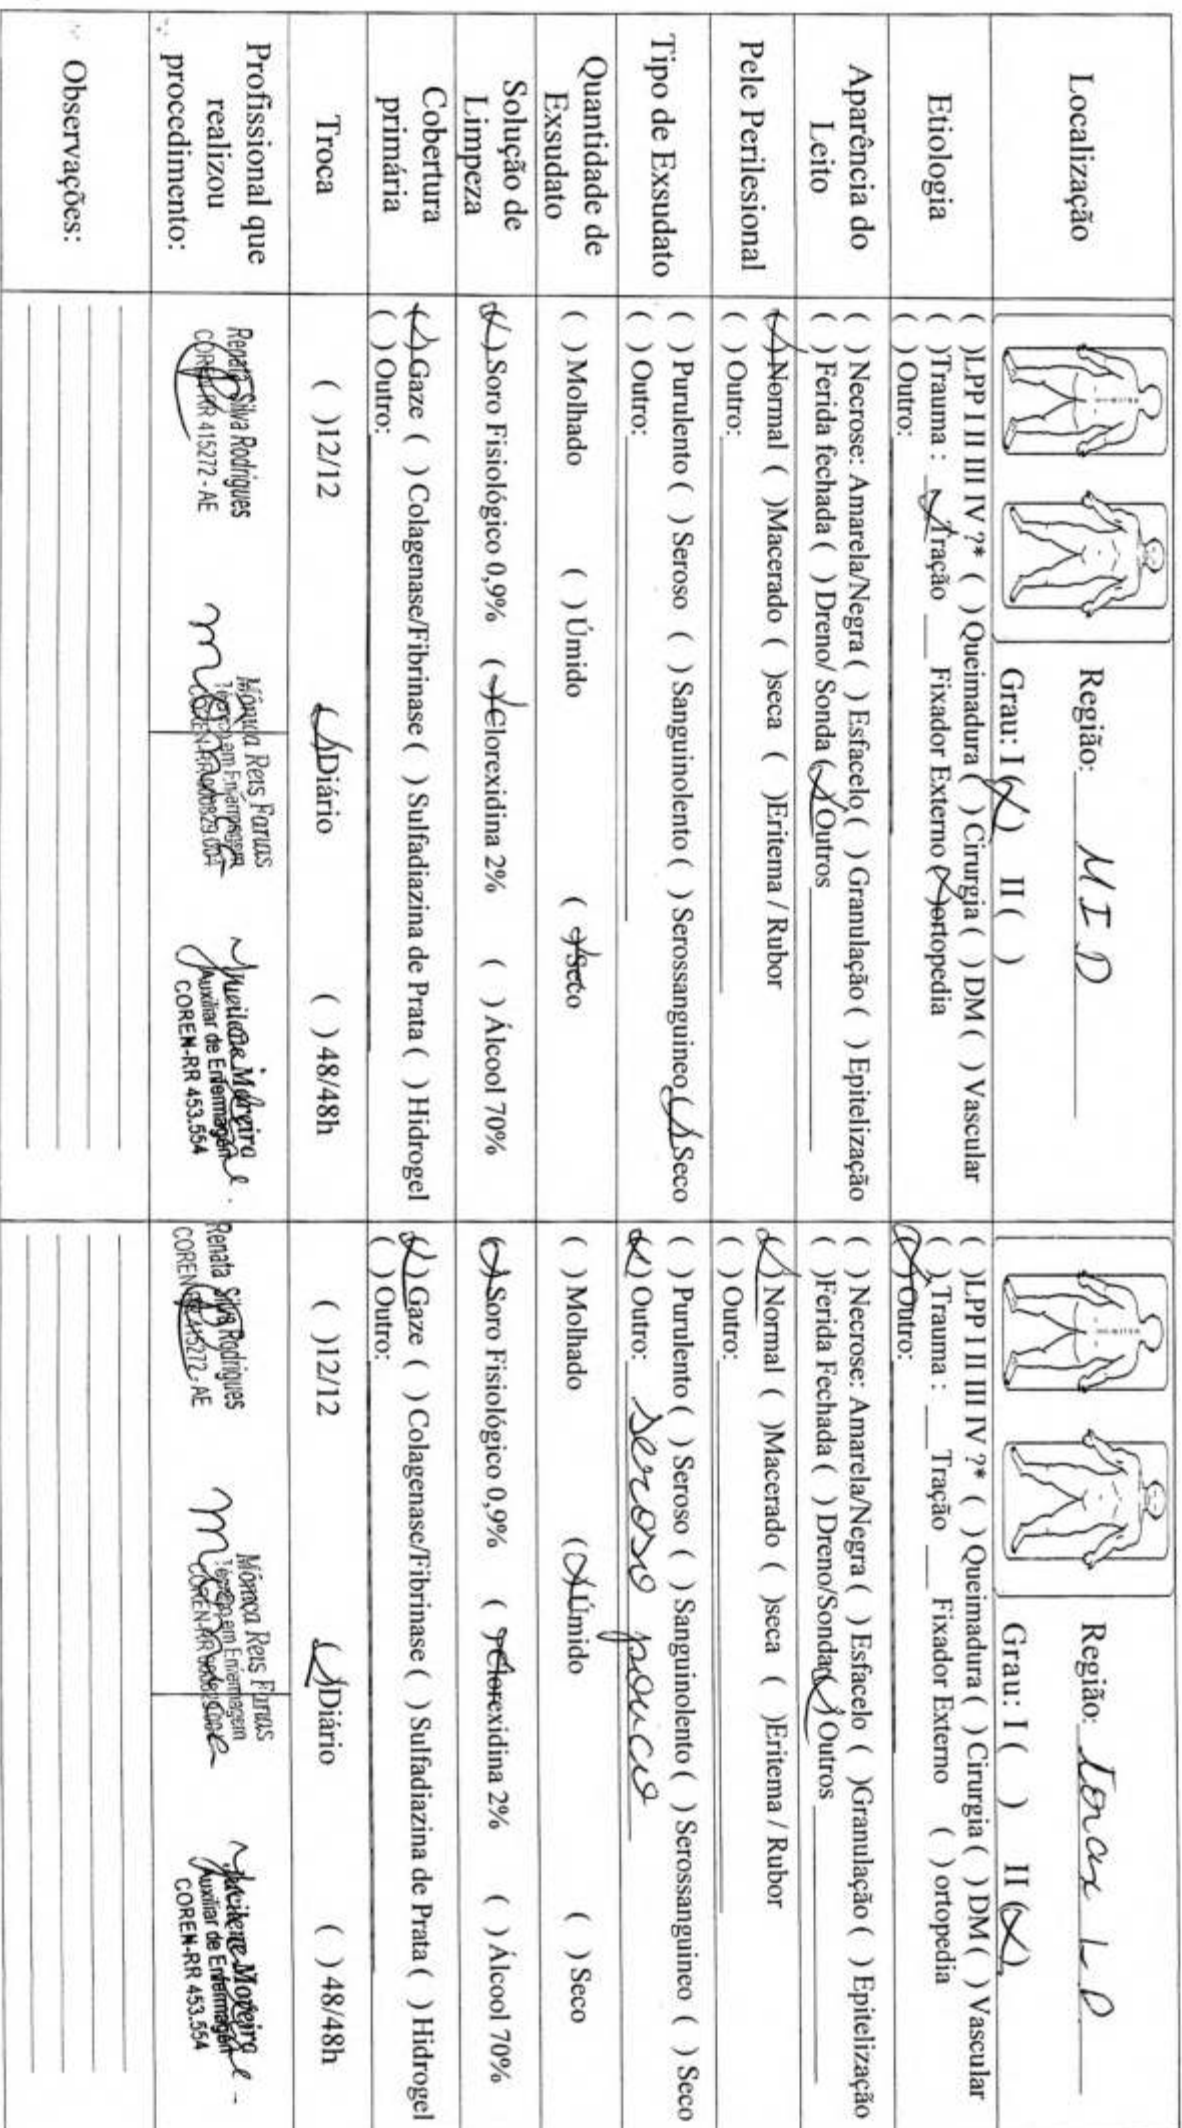 Localização
Região: MID
Grau: I (X) II ( )
Região: Torax LD
Grau: I ( ) II (X)
Etiologia
( )LPP I II III IV ?* ( )Queimadura ( )Cirurgia ( ) DM ( ) Vascular
( )Trauma : X Tração ___ Fixador Externo (X)ortopedia
( ) Outro:
( )LPP I II III IV ?* ( )Queimadura ( )Cirurgia ( )DM ( ) Vascular
( ) Trauma : ___ Tração ___ Fixador Externo ( ) ortopedia
(X) Outro:
Aparência do
Leito
( ) Necrose: Amarela/Negra ( ) Esfacelo ( ) Granulação ( ) Epitelização
( ) Ferida fechada ( ) Dreno/ Sonda (X) Outros
( ) Necrose: Amarela/Negra ( ) Esfacelo ( )Granulação ( ) Epitelização
( )Ferida Fechada ( ) Dreno/Sonda(X) Outros
Pele Perilesional
(X)Normal ( )Macerado ( )seca ( )Eritema / Rubor
( ) Outro:
(X)Normal ( )Macerado ( )seca ( )Eritema / Rubor
( ) Outro:
Tipo de Exsudato
( ) Purulento ( ) Seroso ( ) Sanguinolento ( ) Serossanguineo (X) Seco
( ) Outro:
( ) Purulento ( ) Seroso ( ) Sanguinolento ( ) Serossanguineo ( ) Seco
(X) Outro: seroso pouco
Quantidade de
Exsudato
( ) Molhado ( ) Úmido (X) Seco
( ) Molhado (X) Úmido ( ) Seco
Solução de
Limpeza
(X) Soro Fisiológico 0,9% (X) Clorexidina 2% ( ) Álcool 70%
(X) Soro Fisiológico 0,9% (X) Clorexidina 2% ( ) Álcool 70%
Cobertura
primária
(X)Gaze ( ) Colagenase/Fibrinase ( ) Sulfadiazina de Prata ( ) Hidrogel
( ) Outro:
(X)Gaze ( ) Colagenase/Fibrinase ( ) Sulfadiazina de Prata ( ) Hidrogel
( ) Outro:
Troca
( )12/12 (X)Diário ( ) 48/48h
( )12/12 (X)Diário ( ) 48/48h
Profissional que
realizou
procedimento:
Renata Silva Rodrigues
COREN-RR 415272 - AE
Mônica Reis Farias
Técnico em Enfermagem
Jucilene Moreira
Auxiliar de Enfermagem
COREN-RR 453.554
Renata Silva Rodrigues
COREN-RR 415272 - AE
Mônica Reis Farias
Técnico em Enfermagem
Jucilene Moreira
Auxiliar de Enfermagem
COREN-RR 453.554
Observações: